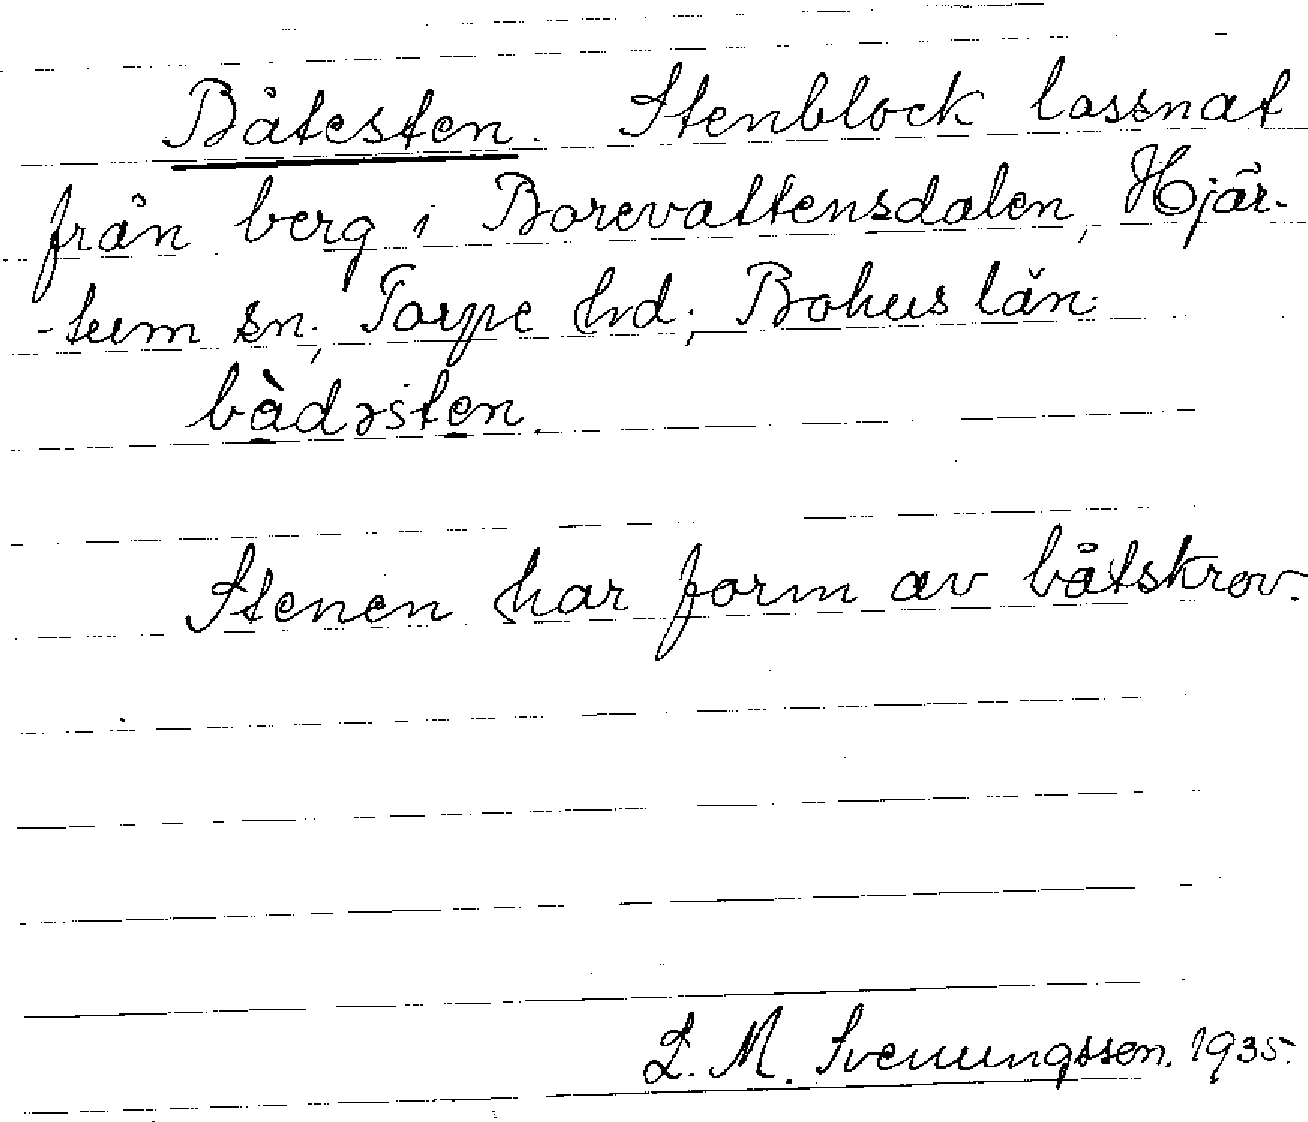 Båtesten. Stenblock lossnat
från berg i Borevattensdalen, Hjär-
-tum sn, Torpe hd; Bohus län.
bàdǝsten.
Stenen har form av båtskrov.
L. M. Svenungsson. 1935.